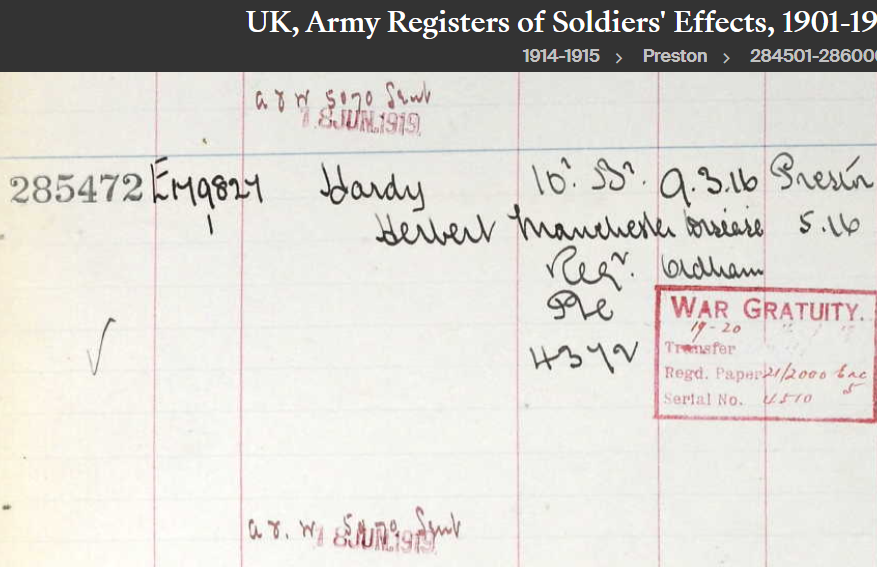 UK, Army Registers of Soldiers' Effects, 1901-19
1914-1915 > Preston > 284501-28600
8 JUN 1919
285472 E/149827 Hardy 10th Bn. 9.3.16 Preston
1 Herbert Manchester Disease 5.16
Regt. Oldham
Pte
4372
WAR GRATUITY.
19-20
Transfer
Regd. Paper 21/2000
Serial No.
8 JUN 1919